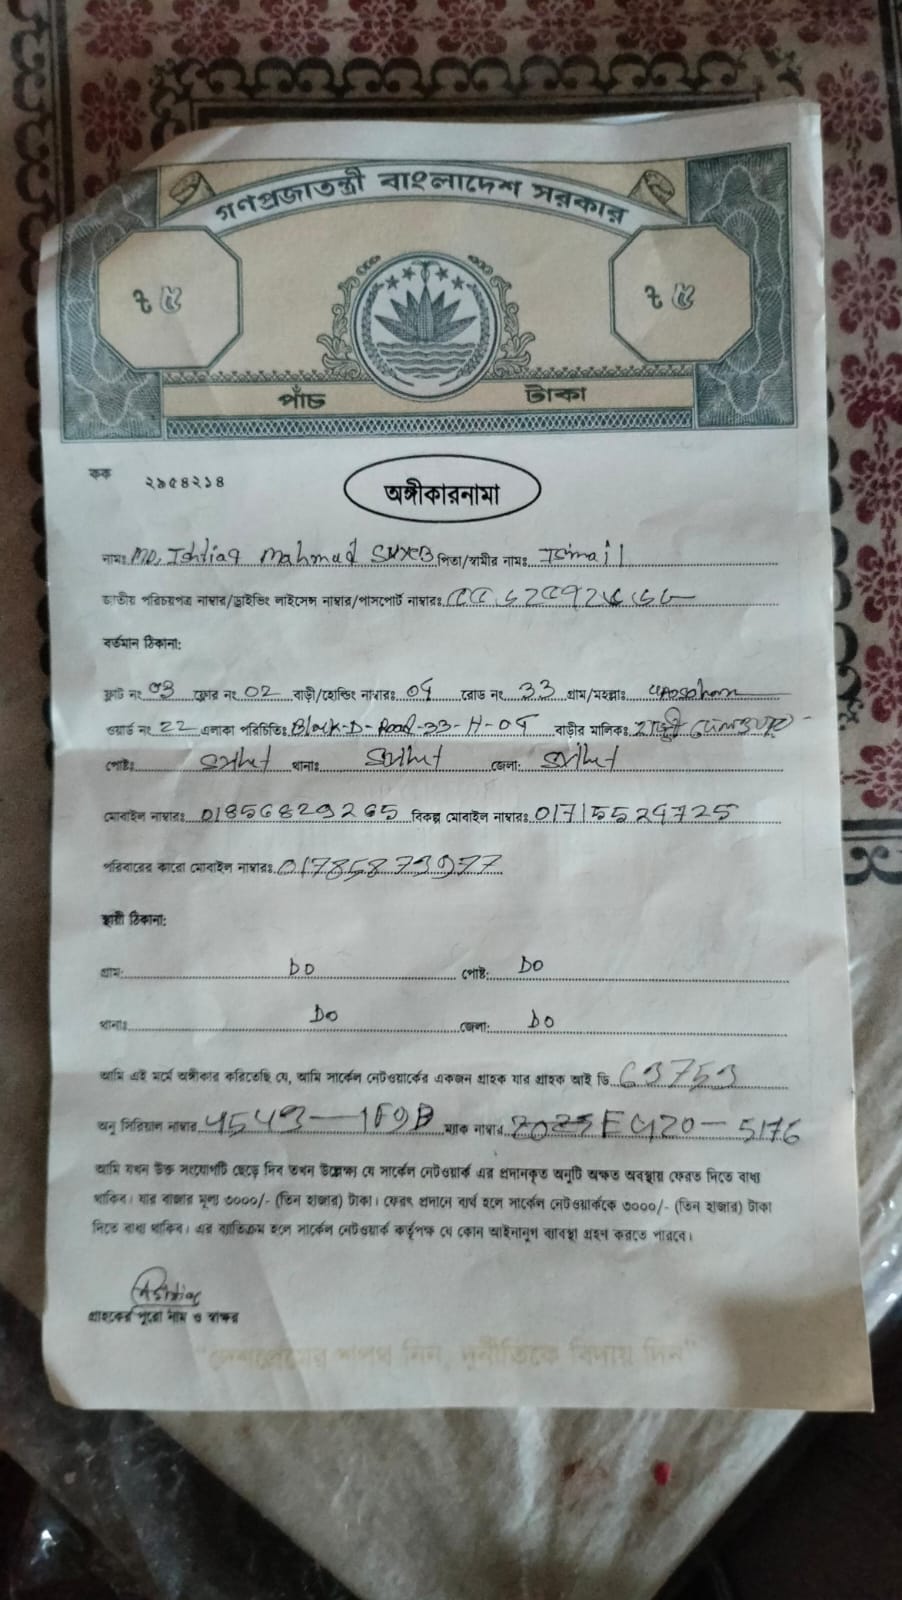 গণপ্রজাতন্ত্রী বাংলাদেশ সরকার
৳ ৫ ৳ ৫
পাঁচ টাকা
কক ২৯৫৪২১৪
অঙ্গীকারনামা
নামঃ MD, Ishtiaq Mahmud পিতা/স্বামীর নামঃ Ismail
জাতীয় পরিচয়পত্র নাম্বার/ড্রাইভিং লাইসেন্স নাম্বার/পাসপোর্ট নাম্বারঃ
বর্তমান ঠিকানা:
ফ্লাট নং 03 ফ্লোর নং 02 বাড়ী/হোল্ডিং নাম্বারঃ রোড নং 33 গ্রাম/মহল্লাঃ
ওয়ার্ড নং 22 এলাকা পরিচিতিঃ Block-D-Road-33-H- বাড়ীর মালিকঃ হাজী
পোষ্টঃ Sylhet থানাঃ Sylhet জেলা: Sylhet
মোবাইল নাম্বারঃ 01856829265 বিকল্প মোবাইল নাম্বারঃ
পরিবারের কারো মোবাইল নাম্বারঃ
স্থায়ী ঠিকানা:
গ্রাম: DO পোষ্ট: DO
থানাঃ Do জেলা: DO
আমি এই মর্মে অঙ্গীকার করিতেছি যে, আমি সার্কেল নেটওয়ার্কের একজন গ্রাহক যার গ্রাহক আই ডি 63753
অনু সিরিয়াল নাম্বার ম্যাক নাম্বার
আমি যখন উক্ত সংযোগটি ছেড়ে দিব তখন উল্লেক্ষ্য যে সার্কেল নেটওয়ার্ক এর প্রদানকৃত অনুটি অক্ষত অবস্থায় ফেরত দিতে বাধ্য
থাকিব। যার বাজার মূল্য ৩০০০/- (তিন হাজার) টাকা। ফেরৎ প্রদানে ব্যর্থ হলে সার্কেল নেটওয়ার্ককে ৩০০০/- (তিন হাজার) টাকা
দিতে বাধ্য থাকিব। এর ব্যতিক্রম হলে সার্কেল নেটওয়ার্ক কর্তৃপক্ষ যে কোন আইনানুগ ব্যাবস্থা গ্রহণ করতে পারবে।
গ্রাহকের পুরো নাম ও স্বাক্ষর
"দেশপ্রেমের শপথ নিন, দুর্নীতিকে বিদায় দিন"